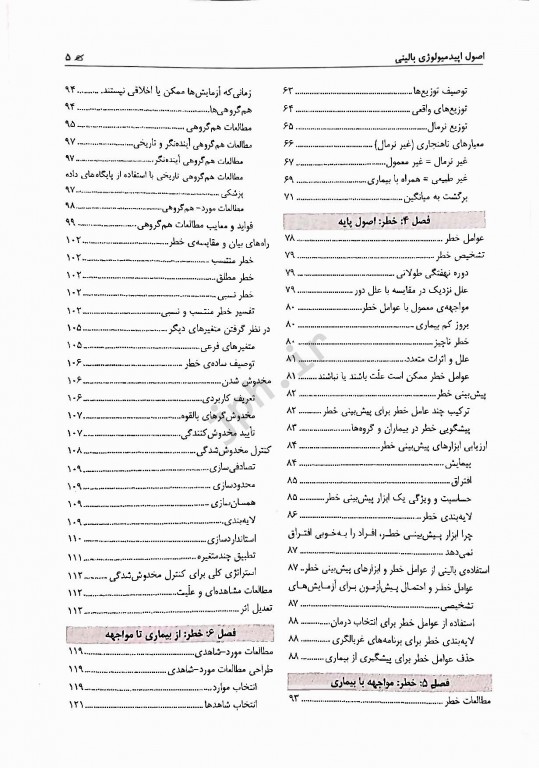 اصول اپیدمیولوژی بالینی
۵
توصیف توزیع‌ها ۶۳
توزیع‌های واقعی ۶۴
توزیع نرمال ۶۵
معیارهای ناهنجاری (غیر نرمال) ۶۶
غیر نرمال = غیر معمول ۶۷
غیر طبیعی = همراه با بیماری ۶۹
برگشت به میانگین ۷۱
فصل ۴: خطر: اصول پایه
عوامل خطر ۷۸
تشخیص خطر ۷۹
دوره نهفتگی طولانی ۷۹
علل نزدیک در مقایسه با علل دور ۷۹
مواجهه‌ی معمول با عوامل خطر ۸۰
بروز کم بیماری ۸۰
خطر ناچیز ۸۰
علل و اثرات متعدد ۸۱
عوامل خطر ممکن است علّت باشند یا نباشند ۸۱
پیش‌بینی خطر ۸۲
ترکیب چند عامل خطر برای پیش‌بینی خطر ۸۲
پیشگویی خطر در بیماران و گروه‌ها ۸۳
ارزیابی ابزارهای پیش‌بینی خطر ۸۴
پیمایش ۸۴
افتراق ۸۵
حساسیت و ویژگی یک ابزار پیش‌بینی خطر ۸۵
لایه‌بندی خطر ۸۶
چرا ابزار پـیش‌بینـی خطـر، افـراد را بـه‌خوبی افتـراق
نمی‌دهد ۸۷
استفاده‌ی بالینی از عوامل خطر و ابزارهای پیش‌بینی خطر ۸۷
عوامل خطـر و احتمـال پـیش‌آزمـون بـرای آزمـایش‌هـای
تشخیصی ۸۷
استفاده از عوامل خطر برای انتخاب درمان ۸۸
لایه‌بندی خطر برای برنامه‌های غربالگری ۸۸
حذف عوامل خطر برای پیشگیری از بیماری ۸۸
فصل ۵: خطر: مواجهه با بیماری
مطالعات خطر ۹۳
زمانی‌که آزمایش‌ها ممکن یا اخلاقی نیستند ۹۴
هم‌گروهی‌ها ۹۴
مطالعات هم‌گروهی ۹۵
مطالعات هم‌گروهی آینده‌نگر و تاریخی ۹۷
مطالعات هم‌گروهی آینده‌نگر ۹۷
مطالعات هم‌گروهی تاریخی با استفاده از پایگاه‌های داده
پزشکی ۹۷
مطالعات مورد- هم‌گروهی ۹۸
فواید و معایب مطالعات هم‌گروهی ۹۹
راه‌های بیان و مقایسه‌ی خطر ۱۰۲
خطر منتسب ۱۰۲
خطر مطلق ۱۰۲
خطر نسبی ۱۰۲
تفسیر خطر منتسب و نسبی ۱۰۲
در نظر گرفتن متغیرهای دیگر ۱۰۵
متغیرهای فرعی ۱۰۵
توصیف ساده‌ی خطر ۱۰۶
مخدوش شدن ۱۰۶
تعریف کاربردی ۱۰۶
مخدوش‌گرهای بالقوه ۱۰۷
تأیید مخدوش‌کنندگی ۱۰۷
کنترل مخدوش‌شدگی ۱۰۸
تصادفی‌سازی ۱۰۹
محدودسازی ۱۰۹
همسان‌سازی ۱۰۹
لایه‌بندی ۱۰۹
استانداردسازی ۱۱۰
تطبیق چندمتغیره ۱۱۱
استراتژی کلی برای کنترل مخدوش‌شدگی ۱۱۲
مطالعات مشاهده‌ای و علّیت ۱۱۲
تعدیل اثر ۱۱۲
فصل ۶: خطر: از بیماری تا مواجهه
مطالعات مورد-شاهدی ۱۱۹
طراحی مطالعات مورد-شاهدی ۱۱۹
انتخاب موارد ۱۱۹
انتخاب شاهدها ۱۲۱